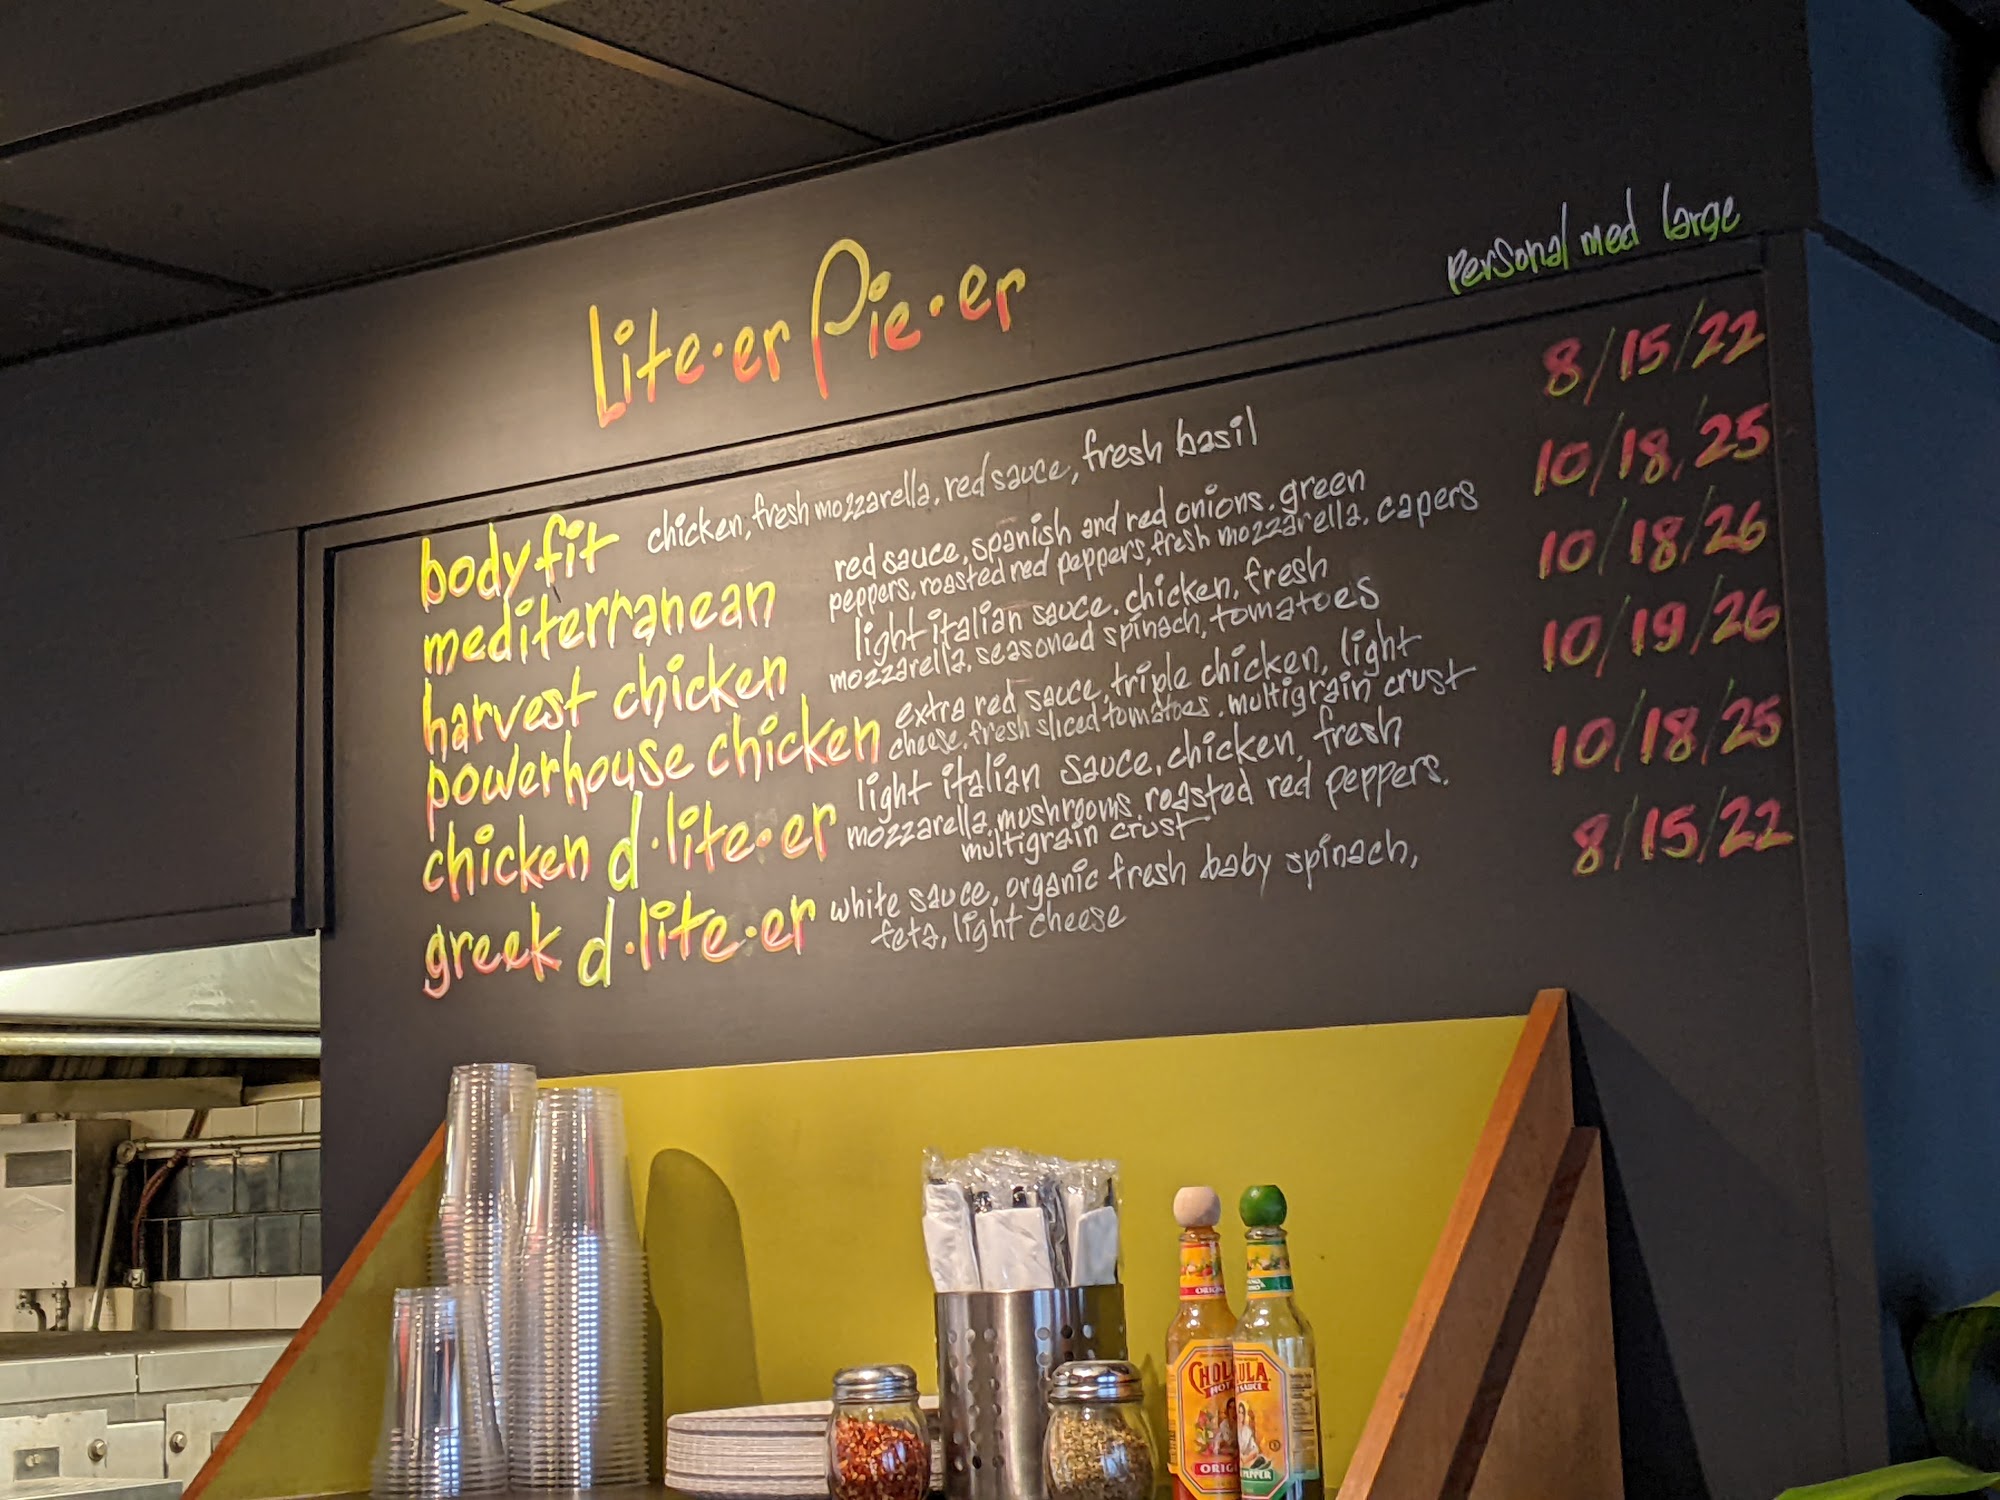 Lite·er Pie·er
personal med large
bodyfit chicken, fresh mozzarella, red sauce, fresh basil 8/15/22
mediterranean red sauce, spanish and red onions, green
peppers, roasted red peppers, fresh mozzarella, capers 10/18/25
harvest chicken light italian sauce, chicken, fresh
mozzarella, seasoned spinach, tomatoes 10/18/26
powerhouse chicken extra red sauce, triple chicken, light
cheese, fresh sliced tomatoes, multigrain crust 10/19/26
chicken d·lite·er light italian sauce, chicken, fresh
mozzarella, mushrooms, roasted red peppers.
multigrain crust 10/18/25
greek d·lite·er white sauce, organic fresh baby spinach,
feta, light cheese 8/15/22